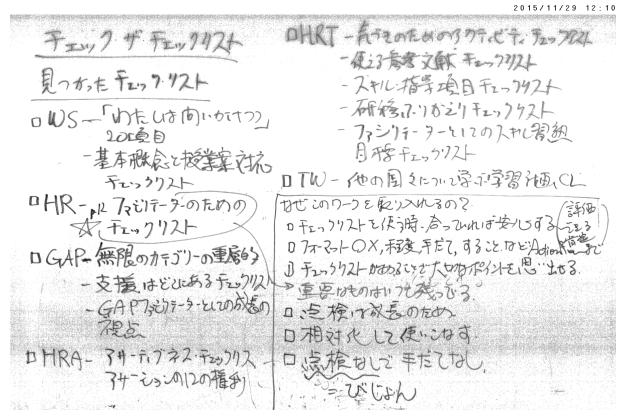 2015/11/29 12:10
チェック・ザ・チェックリスト
見つかったチェック・リスト
□WS-「わたしは問いかけつつ」
20項目
-基本概念と授業案対応
チェックリスト
□HR-p12 ファシリテーターのための
☆チェックリスト
□GAP-無限のカテゴリーの重層的
-支援はどこにあるチェックリスト
-GAPファシリテーターとしての成長の
視点
□HRA-アサーティブネス・チェックリスト
アサーションの12の権利
□HRT-のためのアクティビティ・チェックリスト
-使える参考文献チェックリスト
-スキル・指導項目チェックリスト
-研修ふりかえりチェックリスト
-ファシリテーターとしてのスキル習熟
目標チェックリスト
□TW-他の国々について学ぶ学習計画CL
なぜこのワークを取り入れるの?
□チェックリストを使う時、合っていれば安心する
評価
□フォーマット○×,程度,手だて,すること,などActionまで
チェックリストがあることで大切なポイントを思い出せる
重要なものはいつも残っている
□点検は成長のため。
□相対化して使いこなす。
□点検なしで手だてなし。
=びじょん